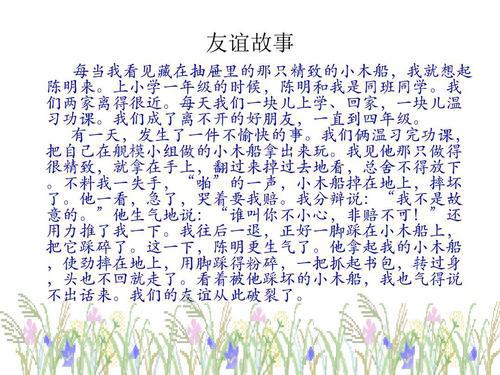 友谊故事
每当我看见藏在抽屉里的那只精致的小木船，我就想起
陈明来。上小学一年级的时候，陈明和我是同班同学。我
们两家离得很近。每天我们一块儿上学、回家，一块儿温
习功课。我们成了离不开的好朋友，一直到四年级。
有一天，发生了一件不愉快的事。我们俩温习完功课，
把自己在舰模小组做的小木船拿出来玩。我见他那只做得
很精致，就拿在手上，翻过来掉过去地看，总舍不得放下
。不料我一失手，“啪”的一声，小木船掉在地上，摔坏
了。他一看，急了，哭着要我赔。我分辩说：“我不是故
意的。”他生气地说：“谁叫你不小心，非赔不可！”还
用力推了我一下。我往后一退，正好一脚踩在小木船上，
把它踩碎了。这一下，陈明更生气了。他拿起我的小木船
，使劲摔在地上，用脚踩得粉碎，一把抓起书包，转过身
，头也不回就走了。看着被他踩坏的小木船，我也气得说
不出话来。我们的友谊从此破裂了。